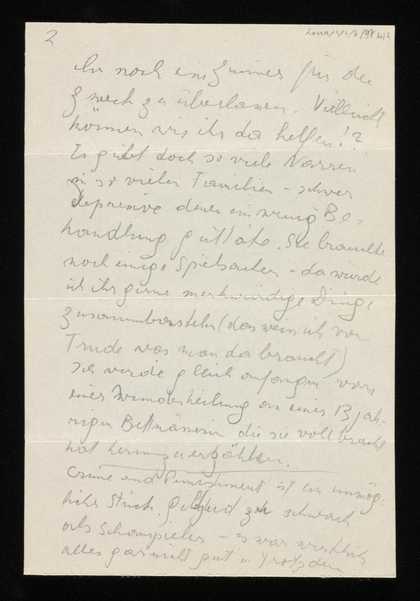 2
ihr noch ein Zimmer für den
Zweck zu überlassen. Vielleicht
können wir ihr da helfen!?
Es gibt doch so viele Narren
in so vielen Familien – schwer
depressive denen ein wenig Be-
handlung gut täte. Sie brauchte
noch einige Spielsachen – da würde
ich ihr gerne merkwürdige Dinge
zusammenbasteln (das weiss ich von
Trude was man da braucht)
Sie werde gleich anfangen von
einer Wunderheilung an einer 13 jäh-
rigen Bettnässerin die sie vollbracht
hat herumzuerzählen.
Crime and Punishment ist ein unmög-
liches Stück. Gielgud sehr schwach
als Schauspieler – es war wirklich
alles gar nicht gut. Trotzdem